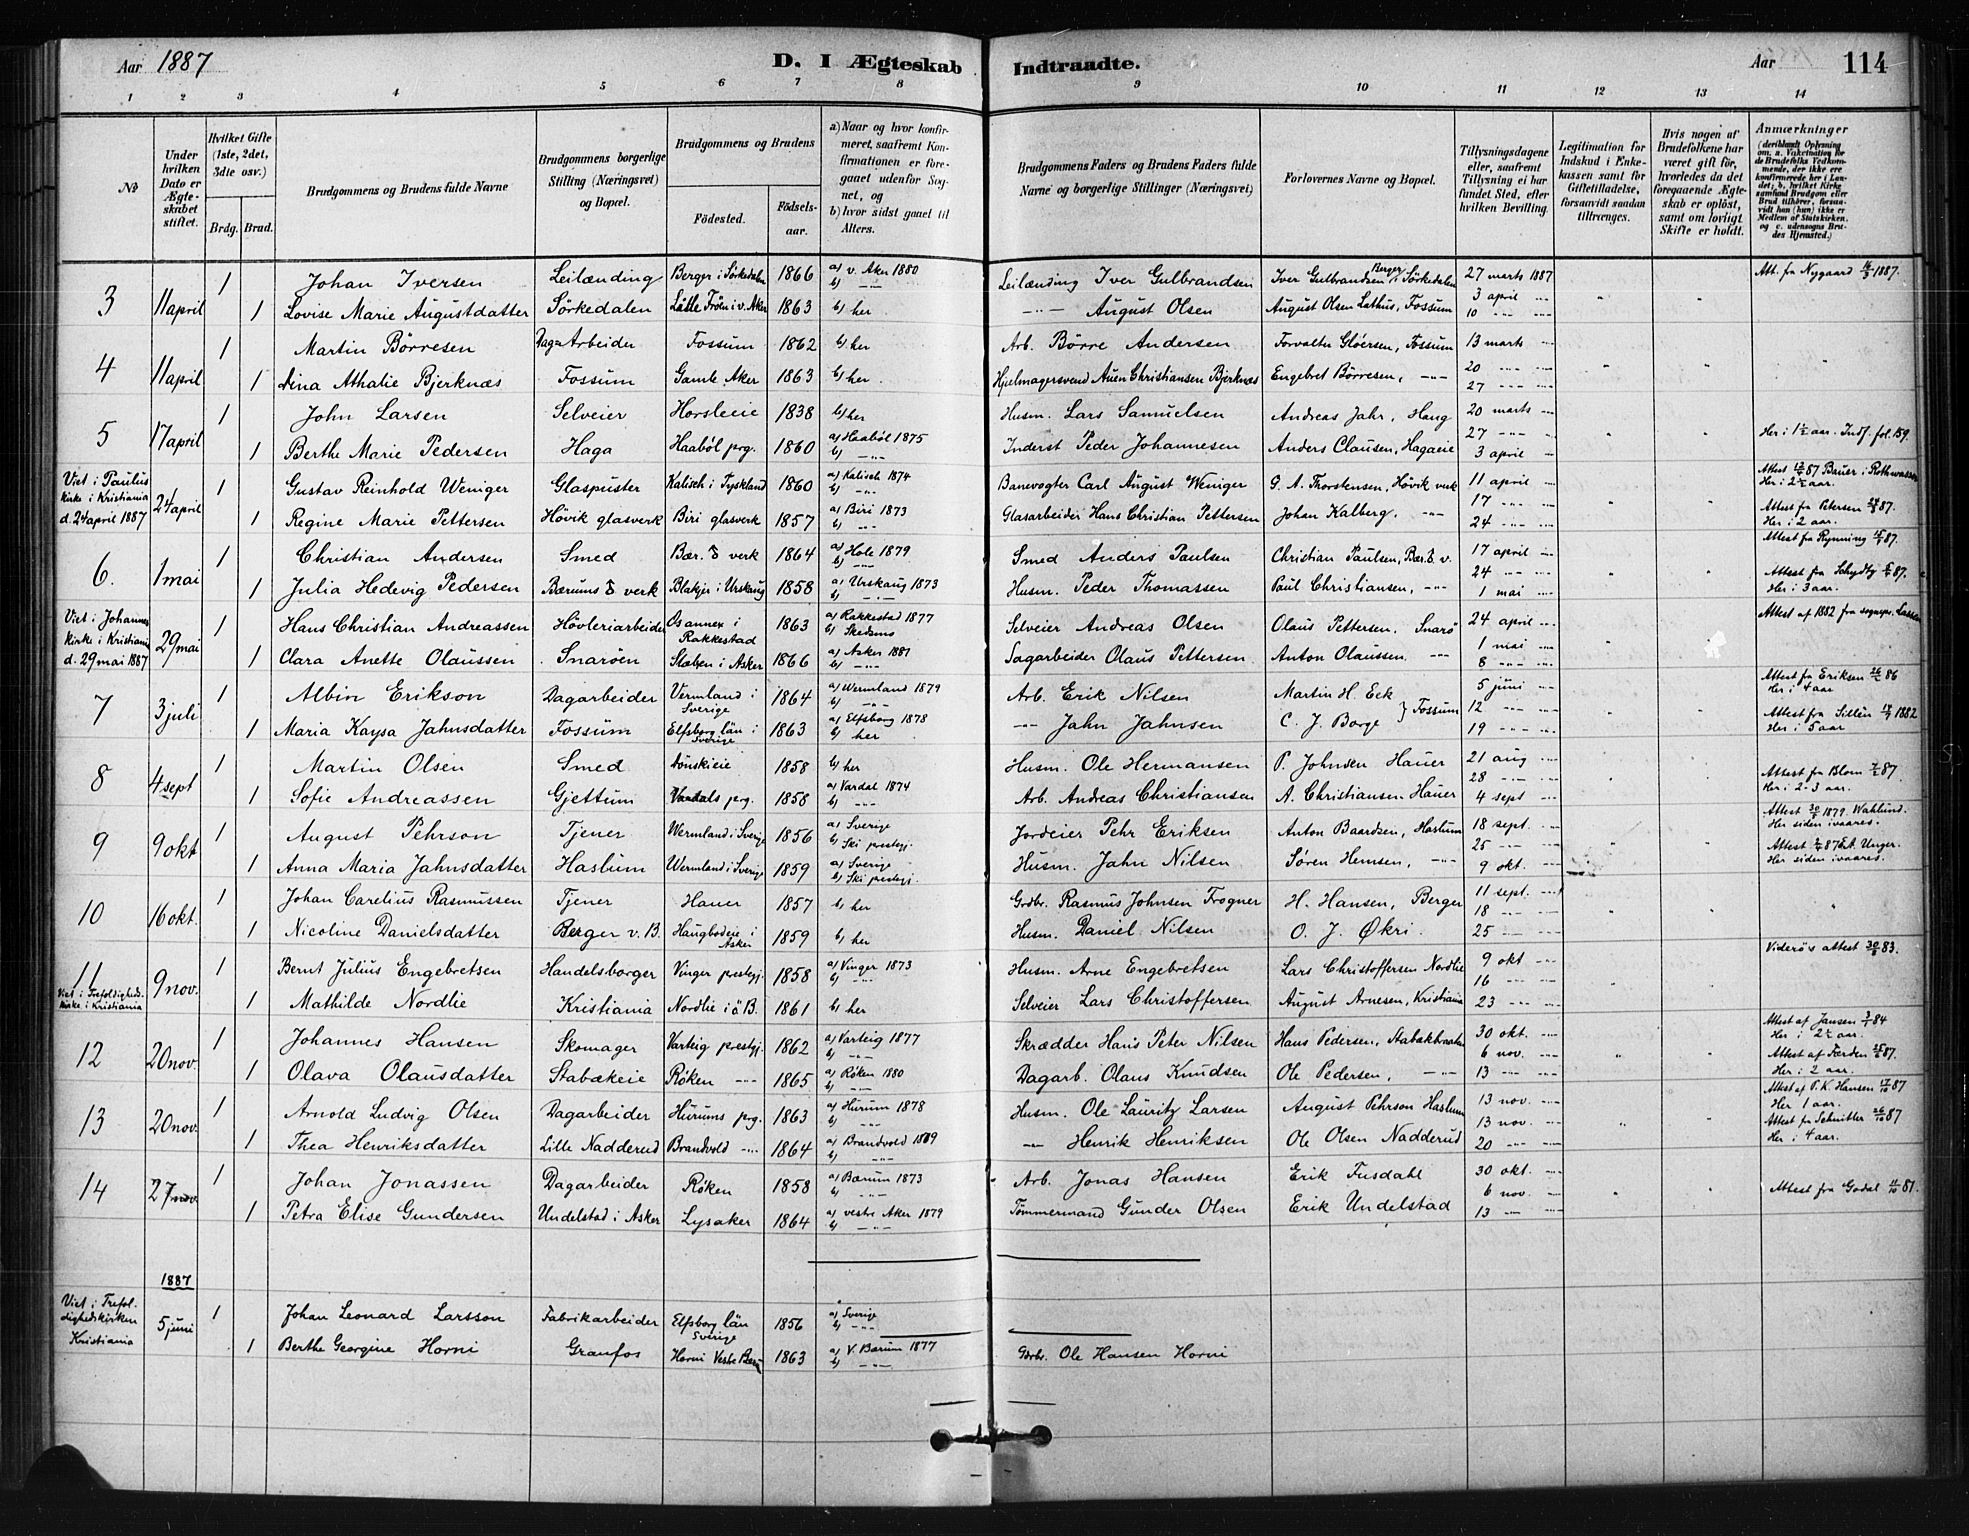 Aar 1887 D. I Ægteskab Indtraadte. Aar 114
1 2 3 4 5 6 7 8 9 10 11 12 13 14
No
Under hvilken Dato er Ægteskabet stiftet.
Hvilket Gifte (1ste, 2det, 3dte osv.)
Brdg. Brud.
Brudgommens og Brudens fulde Navne
Brudgommens borgerlige Stilling (Næringsvei) og Bopæl.
Brudgommens og Brudens
Födested. Födsels-aar.
a) Naar og hvor konfirmeret, saafremt Konfirmationen er foregaaet udenfor Sognet, og
b) hvor sidst gaaet til Alters.
Brudgommens Faders og Brudens Faders fulde Navne og borgerlige Stillinger (Næringsvei)
Forlovernes Navne og Bopæl.
Tillysningsdagene eller, saafremt Tillysning ei har fundet Sted, efter hvilken Bevilling.
Legitimation for Indskud i Enkekassen samt for Giftetilladelse, forsaavidt saadan tiltrænges.
Hvis nogen af Brudefolkene har været gift før, hvorledes da det foregaaende Ægteskab er oplöst, samt om lovligt Skifte er holdt.
Anmærkninger (deriblandt Oplysning om. a. Vakcination for de Brudefolks Vedkommende, der ikke ere konfirmerede her i Landet; b, hvilket Kirkesamfund Brudgom eller Brud tilhører, forsaavidt han (hun) ikke er Medlem af Statskirken. og c. udensogns Brudes Hjemsted.)
3 11 april 1 Johan Iversen Leilænding Berger i Sörkedalen 1866 a) v. Aker 1880 b) -"- Leilænding Iver Gulbrandsen Iver Gulbrandsen Berger i Sörkedalen 27 marts 1887 Att. fra Nygaard 14/3 1887.
1 Lovise Marie Augustdatter Sörkedalen Lille Fröen i v. Aker 1863 b) her -"- August Olsen August Olsen Lathus, Fossum 3 april 10 -"-
4 11 april 1 Martin Börresen Dagarbeider Fossum 1862 b) her Arb. Börre Andersen Forvalter Glöersen, Fossum 13 marts
1 Dina Athalie Bjerknæs Fossum Gamle Aker 1863 b) her Hjulmagersvend Auen Christiansen Bjerknæs Engebret Börresen, -"- 20 -"- 27 -"-
5 17 april 1 John Larsen Selveier Horsleeie 1838 b) her Husm. Lars Samuelsen Andreas Jahr, Haug 20 marts
1 Berthe Marie Pedersen Haga Haaböl prg. 1860 a) Haaböl 1875 b) -"- Inderst Peder Johannesen Anders Clausen, Hagaeie 27 -"- 3 april Her i 1 1/2 aar. Indf. fol. 159.
Viet i Paulus kirke i Kristiania d. 24 april 1887 24 april 1 Gustav Reinhold Weniger Glaspuster Kalisch i Tyskland 1860 a) Kalisch 1874 b) -"- Banevogter Carl August Weniger G. A. Thorstensen, Hövik verk 11 april Her i 2 1/2 aar.
1 Regine Marie Pettersen Hövik glasverk Biri glasverk 1857 a) Biri 1873 b) -"- Glasarbeider Hans Christian Pettersen Johan Kalberg. -"- 17 -"- 24 -"- Attest fra Petersen 87. Her i 2 aar.
6. 1 mai 1 Christian Andersen Smed Bær. verk 1864 a) Hole 1879 b) -"- Smed Anders Paulsen Christian Paulsen, Bær. v. 17 april Attest fra Rynning 87.
1 Julia Hedevig Pedersen Bærums verk Blakjer i Urskaug 1858 a) Urskaug 1873 b) -"- Husm. Peder Thomassen Paul Christiansen, -"- 24 -"- 1 mai Attest fra Schydtz 87. Her i 3 aar.
Viet i Johannes kirke i Kristiania d. 29 mai 1887 29 mai 1 Hans Christian Andreassen Hövleriarbeider Os annex i Rakkestad 1863 a) Rakkestad 1877 b) Skedsmo Selveier Andreas Olsen Olaus Pettersen. Snarö 24 april Attest af 1882 fra sognepr. Lassen
1 Clara Anette Olaussen Snaröen Slæben i Asker 1866 a) Asker 1881 b) -"- Sagarbeider Olaus Pettersen Anton Olaussen -"- 1 mai 8 -"-
7 3 juli 1 Albin Erikson Dagarbeider Vermland i Sverige 1864 a) Wermland 1879 b) -"- Arb. Erik Nilsen Martin H. Eck 5 juni Attest fra Eriksen 86 Her i 4 aar
1 Maria Kaysa Jahnsdatter Fossum Elfsborg län i Sverige 1863 a) Elfsborg 1878 b) her -"- Jahn Jahnsen C. J. Borge } Fossum 12 -"- 19 -"- Attest fra Sillén 1882 Her i 5 aar
8 4 sept 1 Martin Olsen Smed Dönskieie 1858 b) her Husm. Ole Hermansen P. Johnsen Hauer 21 aug
1 Sofie Andreassen Gjettum Vardals prg. 1858 a) Vardal 1874 b) -"- Arb. Andreas Christiansen A. Christiansen Hauer 28 -"- 4 sept Attest fra Blom 87. Her i 2-3 aar.
9 9 okt 1 August Pehrson Tjener Wermland i Sverige 1856 a) Sverige b) Ski prestegj. Jordeier Pehr Eriksen Anton Baardsen, Haslum 18 sept. Attest 1879 Wahlund. Her siden ivaares.
1 Anna Maria Jahnsdatter Haslum Wermland i Sverige 1859 a) Sverige b) Ski prestegj. Husm. Jahn Nilsen Sören Hemsen, -"- 25 -"- 9 okt. Unger. Her siden ivaares.
10 16 okt. 1 Johan Carelius Rasmussen Tjener Hauer 1857 b) her Grdbr. Rasmus Johnsen Frogner H. Hansen, Berger 11 sept.
1 Nicoline Danielsdatter Berger v. B. Haugbodeie i Asker 1859 b) her Husm. Daniel Nilsen O. J. Økri 18 -"- 25 -"-
11 Viet i Trefoldigheds-kirke i Kristiania 9 nov. 1 Bernt Julius Engebretsen Handelsborger Vinger prestgj. 1858 a) Vinger 1873 b) -"- Husm. Arne Engebretsen Lars Christoffersen Nordlie 9 okt Viderö's attest 83.
1 Mathilde Nordlie Kristiania Nordlie i ö B. 1861 b) her Selveier Lars Christoffersen August Arnesen, Kristiania 16 -"- 23 -"-
12 20 nov. 1 Johannes Hansen Skomager Varteig prestgj. 1862 a) Varteig 1877 b) -"- Skrædder Hans Peter Nilsen Hans Pedersen, Stabækbraaten 30 okt. Attest af Jansen 84 Her i 2 1/2 aar.
1 Olava Olausdatter Stabækeie Röken -"- 1865 a) Röken 1880 b) -"- Dagarb. Olaus Knudsen Ole Pedersen, -"- 6 nov. 13 -"- Attest af Færden 87. Her i 2 aar.
13 20 nov. 1 Arnold Ludvig Olsen Dagarbeider Hurums prg. 1863 a) Hurum 1878 b) -"- Husm. Ole Lauritz Larsen August Pehrson Haslum 13 nov. Attest af P. K. Hansen 87 Her 1 aar.
1 Thea Henriksdatter Lille Nadderud Brandvold -"- 1864 a) Brandvold b) -"- -"- Henrik Henriksen Ole Olsen Nadderud 13 nov. 20 -"- Attest fra Schnitler 87 Her i 4 aar.
14 27 nov. 1 Johan Jonassen Dagarbeider Röken 1858 a) Bærum 1873 b) -"- Arb. Jonas Hansen Erik Fusdahl 30 okt.
1 Petra Elise Gundersen Undelstad i Asker Lysaker 1864 a) vestre Aker 1879 b) -"- Tömmermand Gunder Olsen Erik Undelstad 6 nov. 13 -"- Attest fra Godal 87.
1887
Viet i Trefoldighedskirken Kristiania 5 juni 1 Johan Leonard Larsson Fabrikarbeider Elfsborg län Sverige 1856 a) Sverige b) -"-
1 Berthe Georgine Horni Granfos Horni Vestre Bær. 1863 a) V. Bærum 1877 b) -"- Grbr. Ole Hansen Horni